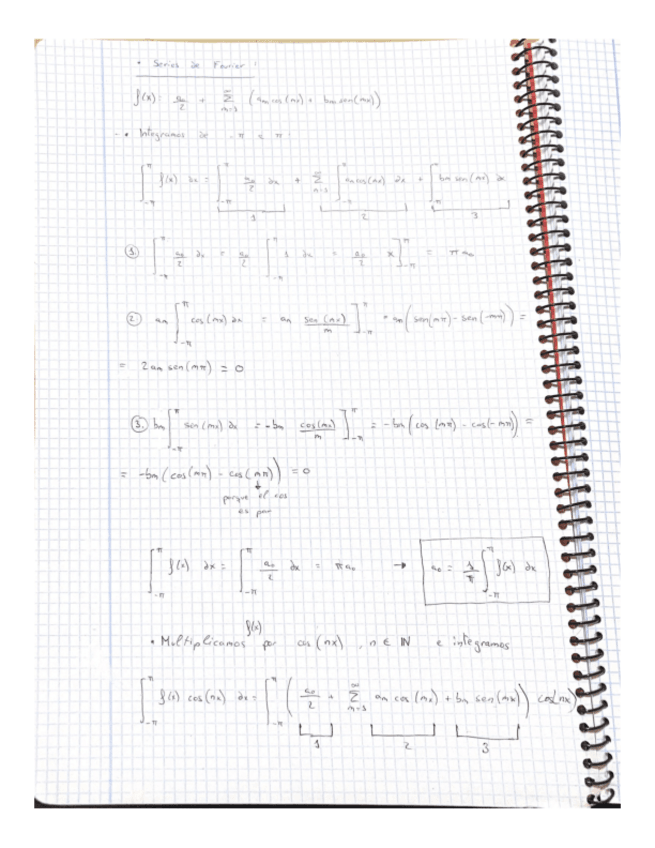 • Series de Fourier:
f(x): a₀/2 + ∑_{m=1}^{∞} (am cos(mx) + bm sen(mx))
- • Integramos de -π a π:
∫_{-π}^{π} f(x) dx = ∫_{-π}^{π} a₀/2 dx + ∑_{m=1}^{∞} ∫_{-π}^{π} am cos(mx) dx + ∫_{-π}^{π} bm sen(mx) dx
1 2 3
1. ∫_{-π}^{π} a₀/2 dx = a₀/2 ∫_{-π}^{π} 1 dx = a₀/2 x]_{-π}^{π} = π a₀
2. am ∫_{-π}^{π} cos(mx) dx = am sen(mx)/m ]_{-π}^{π} = am (sen(mπ) - sen(-mπ)) =
= 2am sen(mπ) = 0
3. bm ∫_{-π}^{π} sen(mx) dx = -bm cos(mx)/m ]_{-π}^{π} = -bm (cos(mπ) - cos(-mπ)) =
= -bm (cos(mπ) - cos(mπ)) = 0
↓
porque el cos
es par
∫_{-π}^{π} f(x) dx = ∫_{-π}^{π} a₀/2 dx = π a₀ → a₀ = 1/π ∫_{-π}^{π} f(x) dx
f(x)
• Multiplicamos por cos(nx), n ∈ ℕ e integramos
∫_{-π}^{π} f(x) cos(nx) dx = ∫_{-π}^{π} ( a₀/2 + ∑_{m=1}^{∞} am cos(mx) + bm sen(mx) ) cos(nx)
1 2 3